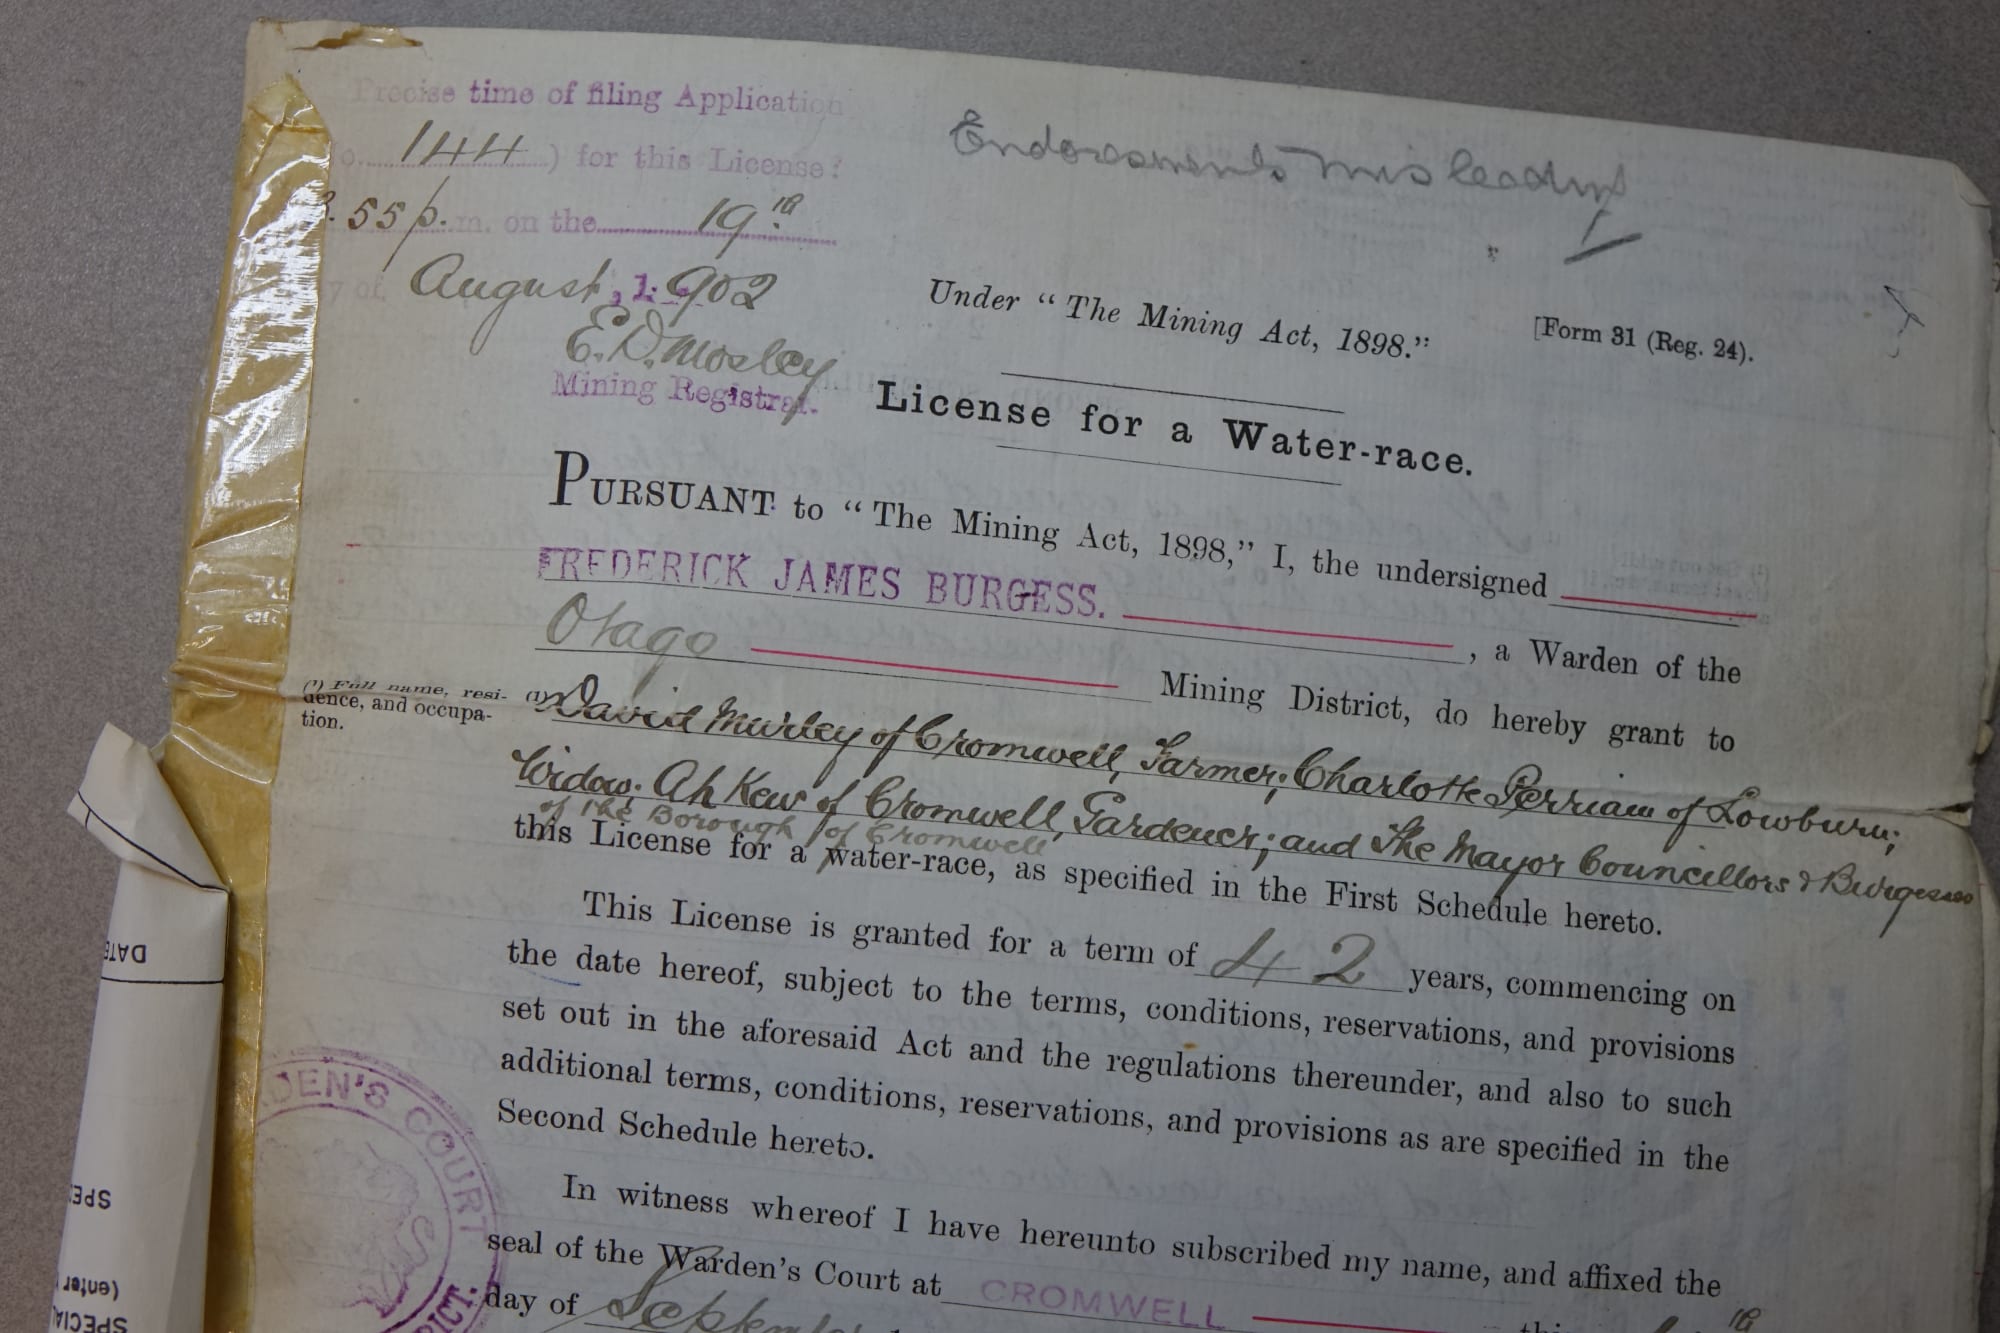 Precise time of filing Application
144 ) for this License:
.55 p.m. on the 19th
August, 1902
E. D. Mosley
Mining Registrar.
Endorsements misleading
Under "The Mining Act, 1898."
[Form 31 (Reg. 24).
License for a Water-race.
PURSUANT to "The Mining Act, 1898," I, the undersigned
FREDERICK JAMES BURGESS. , a Warden of the
Otago Mining District, do hereby grant to
(1) Full name, resi-
dence, and occupa-
tion.
(1) David Murley of Cromwell, Farmer; Charlotte Perriam of Lowburn;
Widow. Ah Kew of Cromwell, Gardener; and The Mayor Councillors & Burgesses
of The Borough of Cromwell
this License for a water-race, as specified in the First Schedule hereto.
This License is granted for a term of 42 years, commencing on
the date hereof, subject to the terms, conditions, reservations, and provisions
set out in the aforesaid Act and the regulations thereunder, and also to such
additional terms, conditions, reservations, and provisions as are specified in the
Second Schedule hereto.
In witness whereof I have hereunto subscribed my name, and affixed the
seal of the Warden's Court at CROMWELL this
day of September
DEN'S COURT
RICT.
DATE
SPE
(enter
SPECIA